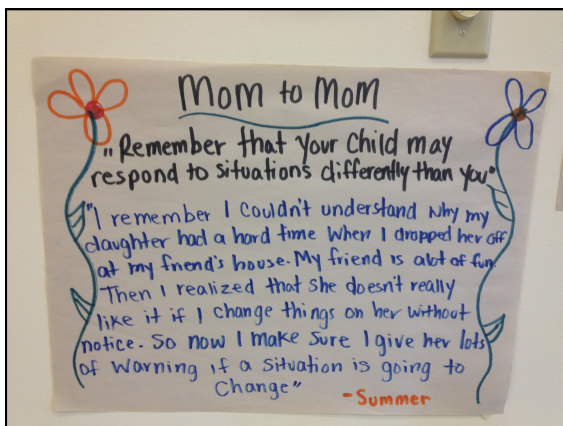 Mom to Mom
"Remember that your child may
respond to situations differently than you"
"I remember I couldn't understand why my
daughter had a hard time when I dropped her off
at my friend's house. My friend is alot of fun.
Then I realized that she doesn't really
like it if I change things on her without
notice. So now I make sure I give her lots
of warning if a situation is going to
change"
-Summer